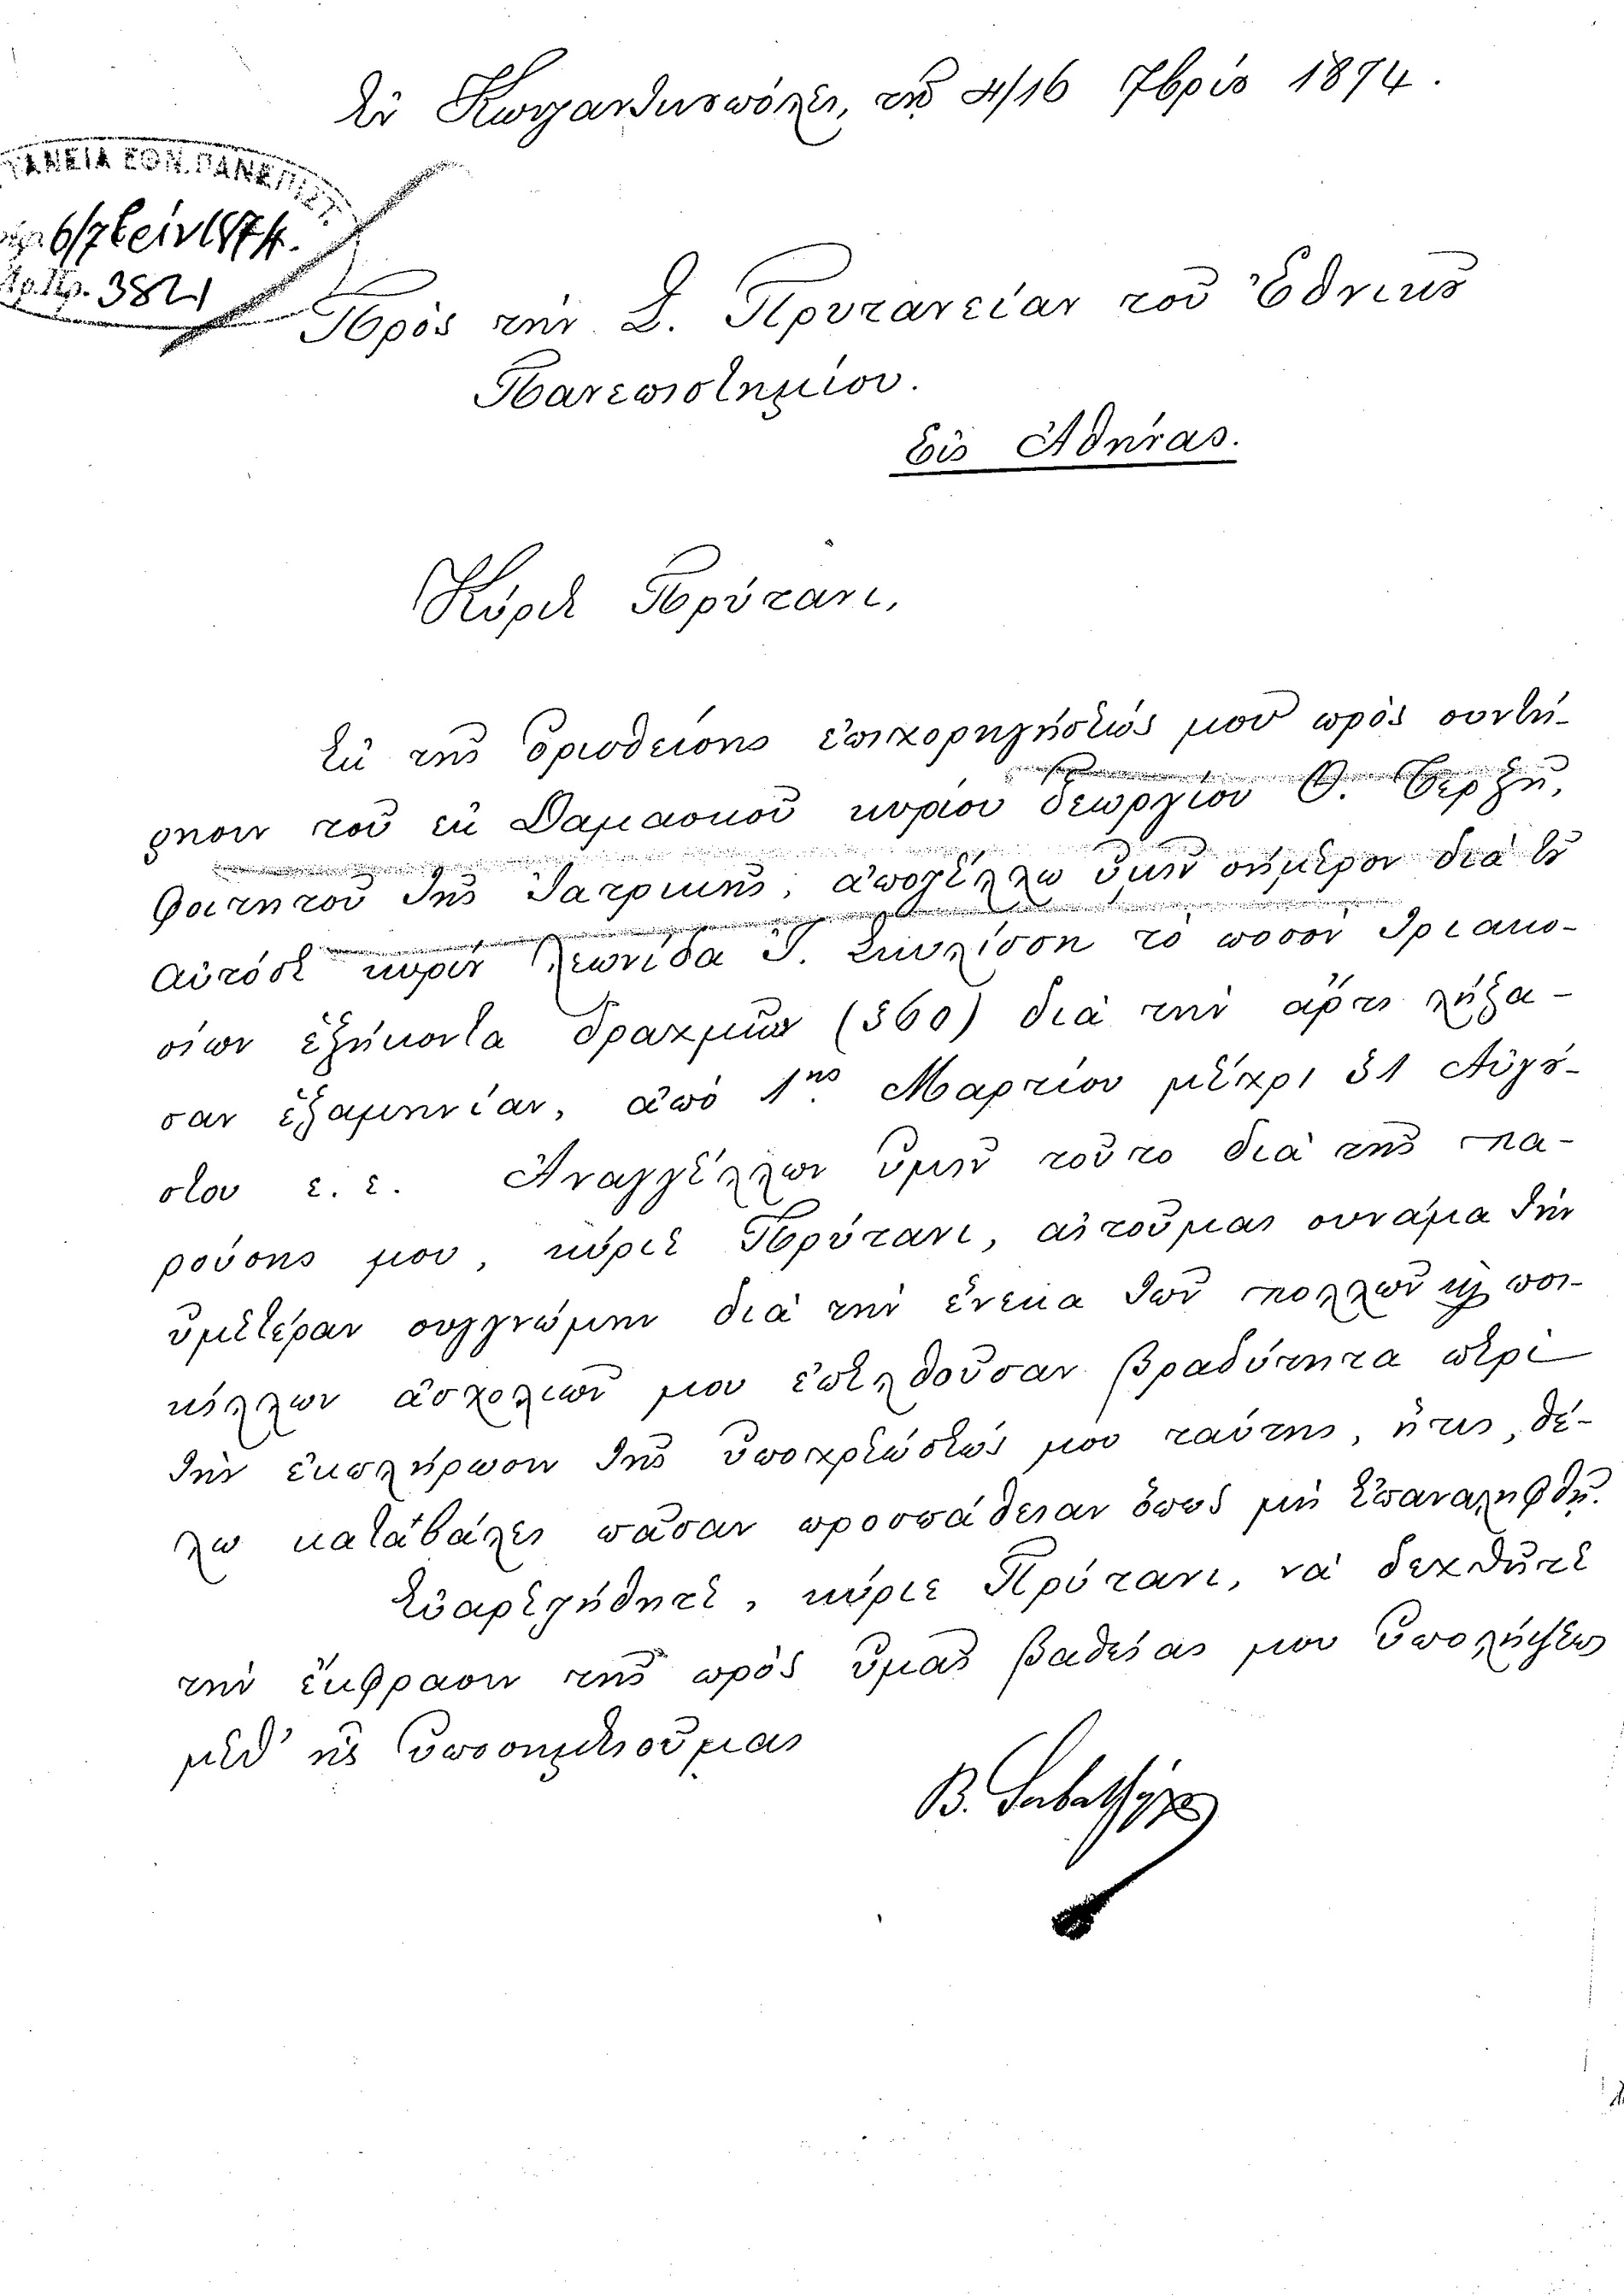 Ἐν Κωνσταντινουπόλει, τῇ 4/16 7βρίου 1874.
ΤΑΝΕΙΑ ΕΘΝ. ΠΑΝΕΠΙΣΤ.
6/7βρίου 1874.
Ἀρ. Πρ. 3821
Πρὸς τὴν Σ. Πρυτανείαν τοῦ Ἐθνικοῦ
Πανεπιστημίου.
Εἰς Ἀθήνας.
Κύριε Πρύτανι,
Ἐκ τῆς ὁρισθείσης ἐπιχορηγήσεώς μου πρὸς συντή-
ρησιν τοῦ ἐκ Δαμασκοῦ κυρίου Γεωργίου Θ.
φοιτητοῦ τῆς Ἰατρικῆς, ἀποστέλλω ὑμῖν σήμερον διὰ τοῦ
αὐτόσε κυρίου Λεωνίδα τὸ ποσὸν τριακο-
σίων ἑξήκοντα δραχμῶν (360) διὰ τὴν ἄρτι λήξα-
σαν ἑξαμηνίαν, ἀπὸ 1ης Μαρτίου μέχρι 31 Αὐγού-
στου ἐ. ἔ. Ἀναγγέλλων ὑμῖν τοῦτο διὰ τῆς πα-
ρούσης μου, κύριε Πρύτανι, αἰτοῦμαι συνάμα τὴν
ὑμετέραν συγγνώμην διὰ τὴν ἕνεκα τῶν πολλῶν καὶ ποι-
κίλλων ἀσχολιῶν μου ἐπελθοῦσαν βραδύτητα περὶ
τὴν ἐκπλήρωσιν τῆς ὑποχρεώσεώς μου ταύτης, ἥτις, θέ-
λω καταβάλει πᾶσαν προσπάθειαν ὅπως μὴ ἐπαναληφθῇ.
Εὐαρεστήθητε, κύριε Πρύτανι, νὰ δεχθῆτε
τὴν ἔκφρασιν τῆς πρὸς ὑμᾶς βαθείας μου ὑπολήψεως
μεθ' ἧς ὑποσημειοῦμαι
Β.